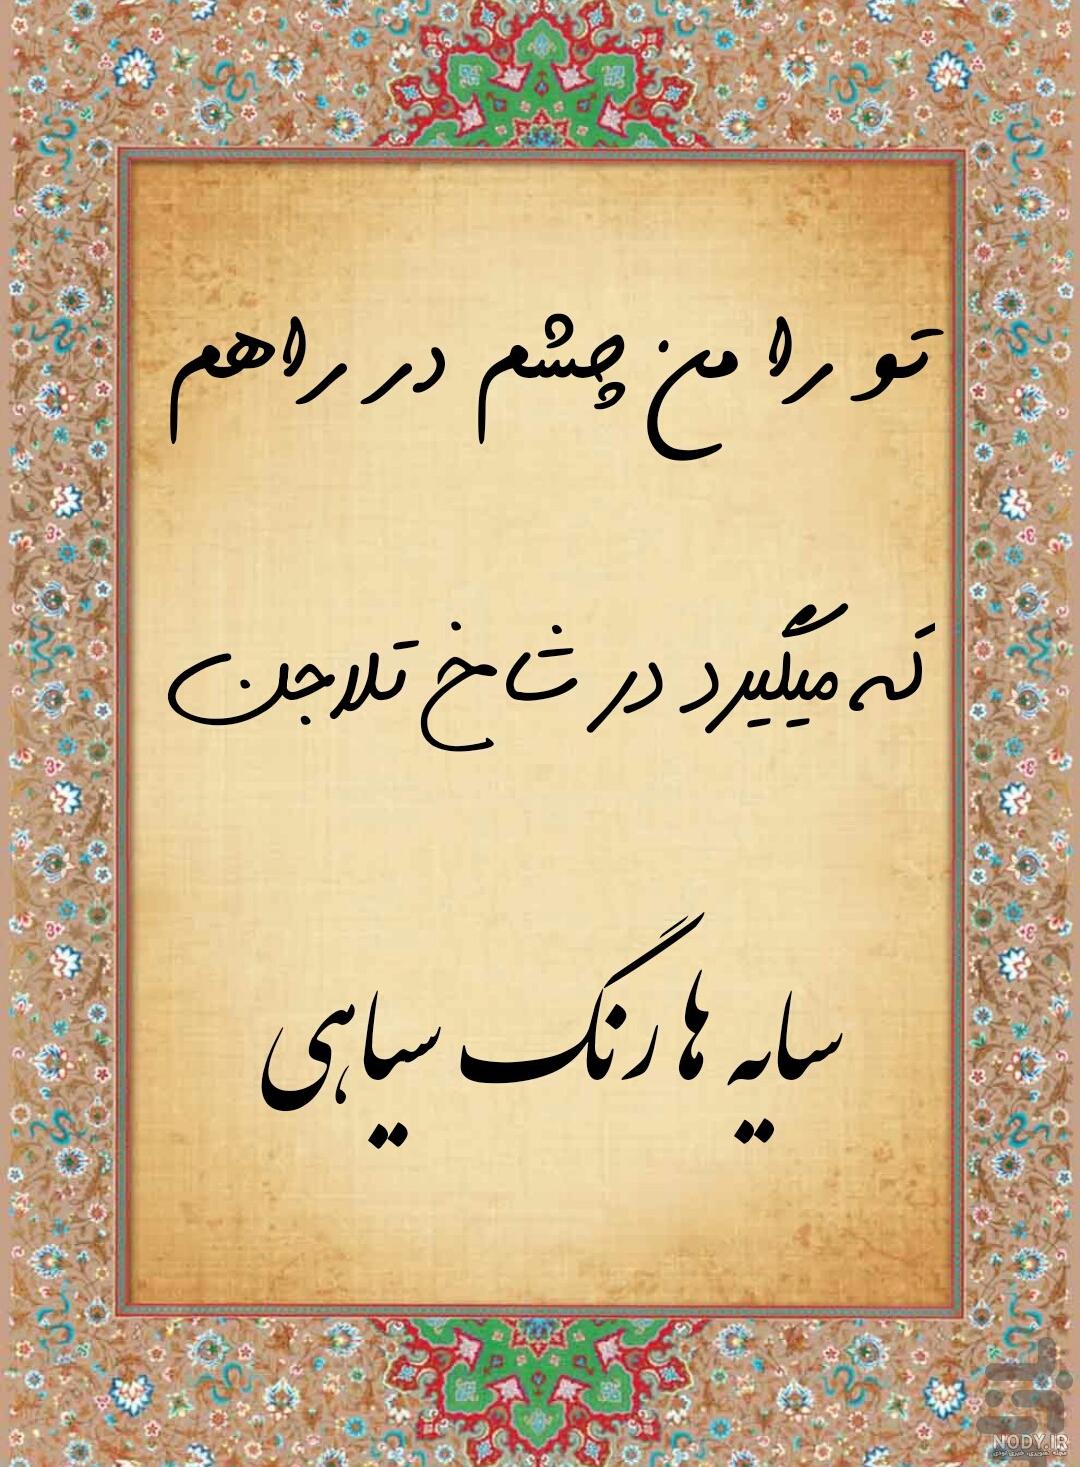 تو را من چشم در راهم
که میگیرد در شاخ تلاجن
سایه ها رنگ سیاهی
NODY.IR